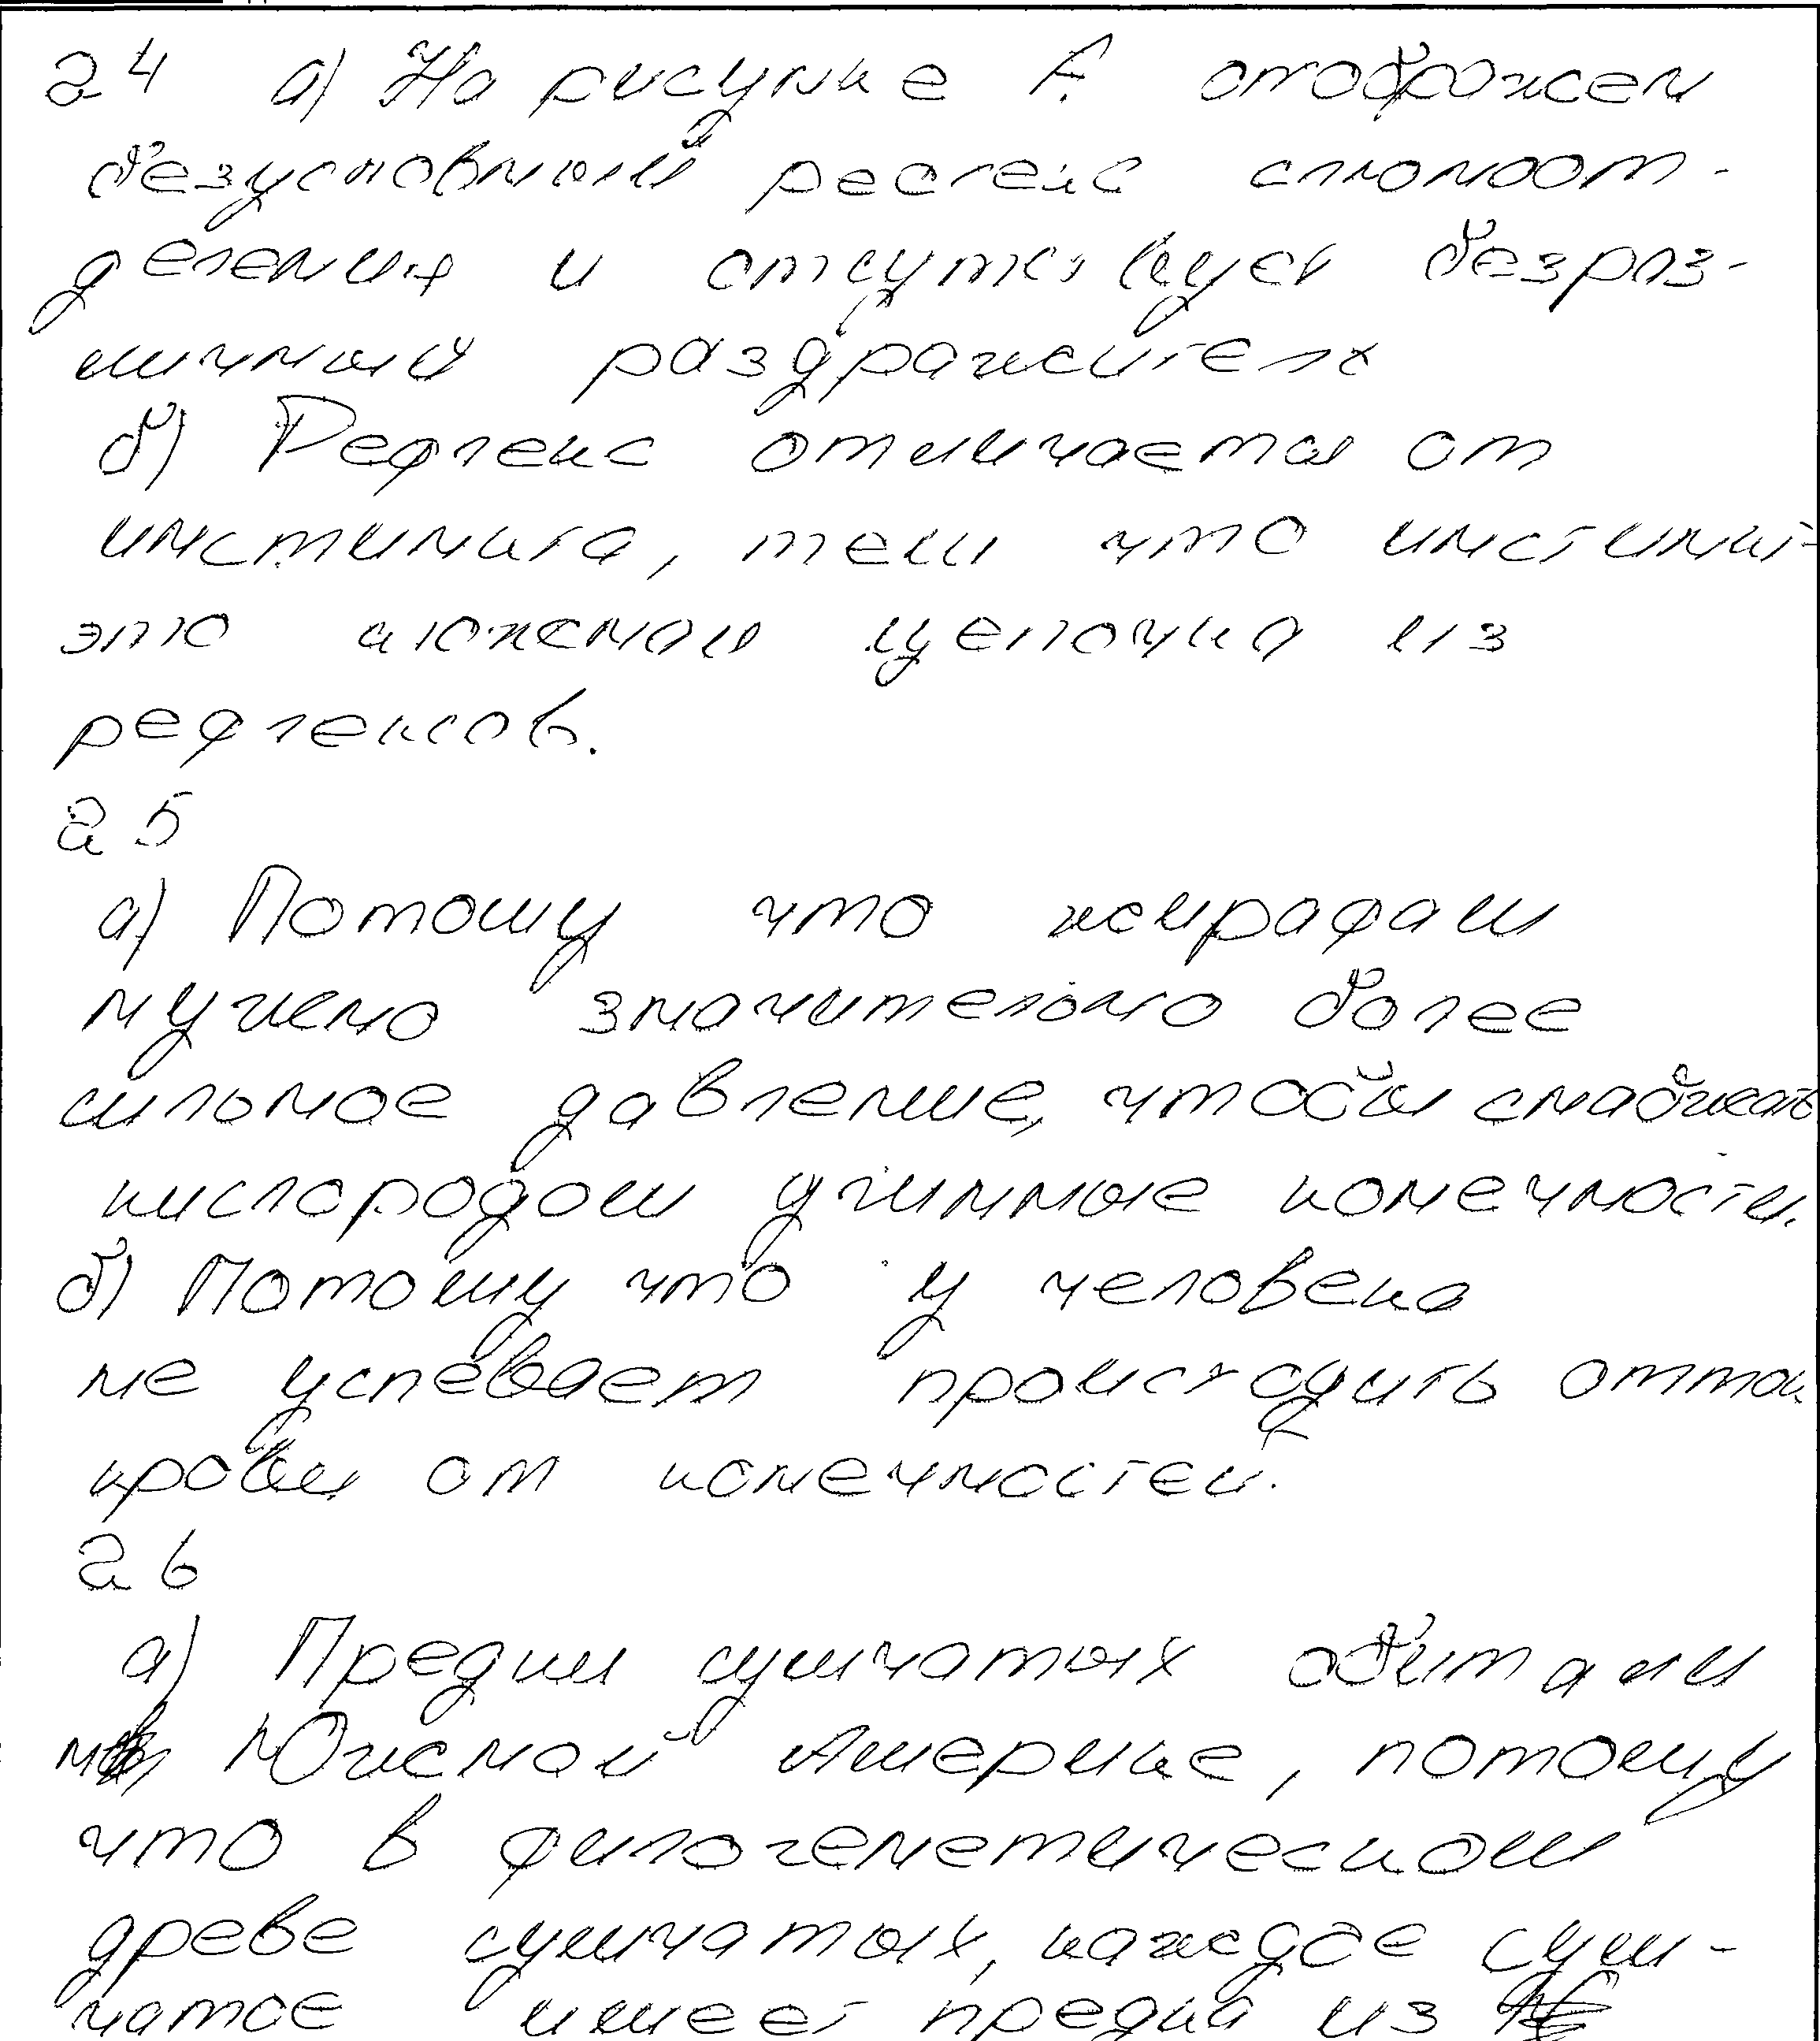 24 а) На рисунке А отображен
безусловный рефлекс слюноот-
деления и отсутствует безраз-
личный раздражитель
б) Рефлекс отличается от
инстинкта, тем что инстинкт-
это сложная цепочка из
рефлексов.
25
а) Потому что жирафам
нужно значительно более
сильное давление, чтобы снабжать
кислородом длинные конечности.
б) Потому что у человека
не успевает происходить отток
крови от конечностей.
26
а) Предки сумчатых обитали
в Южной Америке, потому
что в филогенетическом
древе сумчатых, каждое сум-
чатое имеет предка из